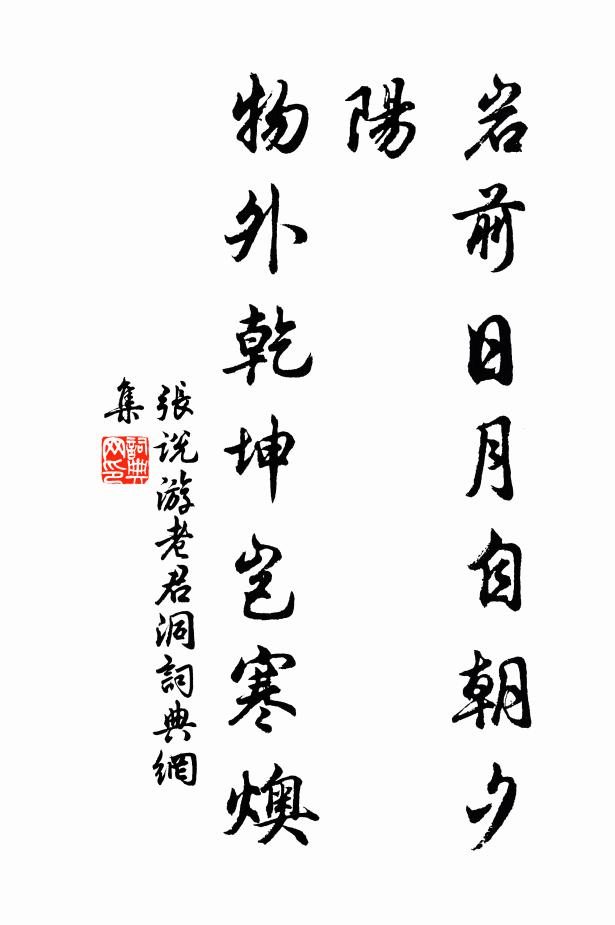 岩前日月自朝夕
陽
物外乾坤岂寒燠
張说游老君洞詞典網
集
詞典
网印